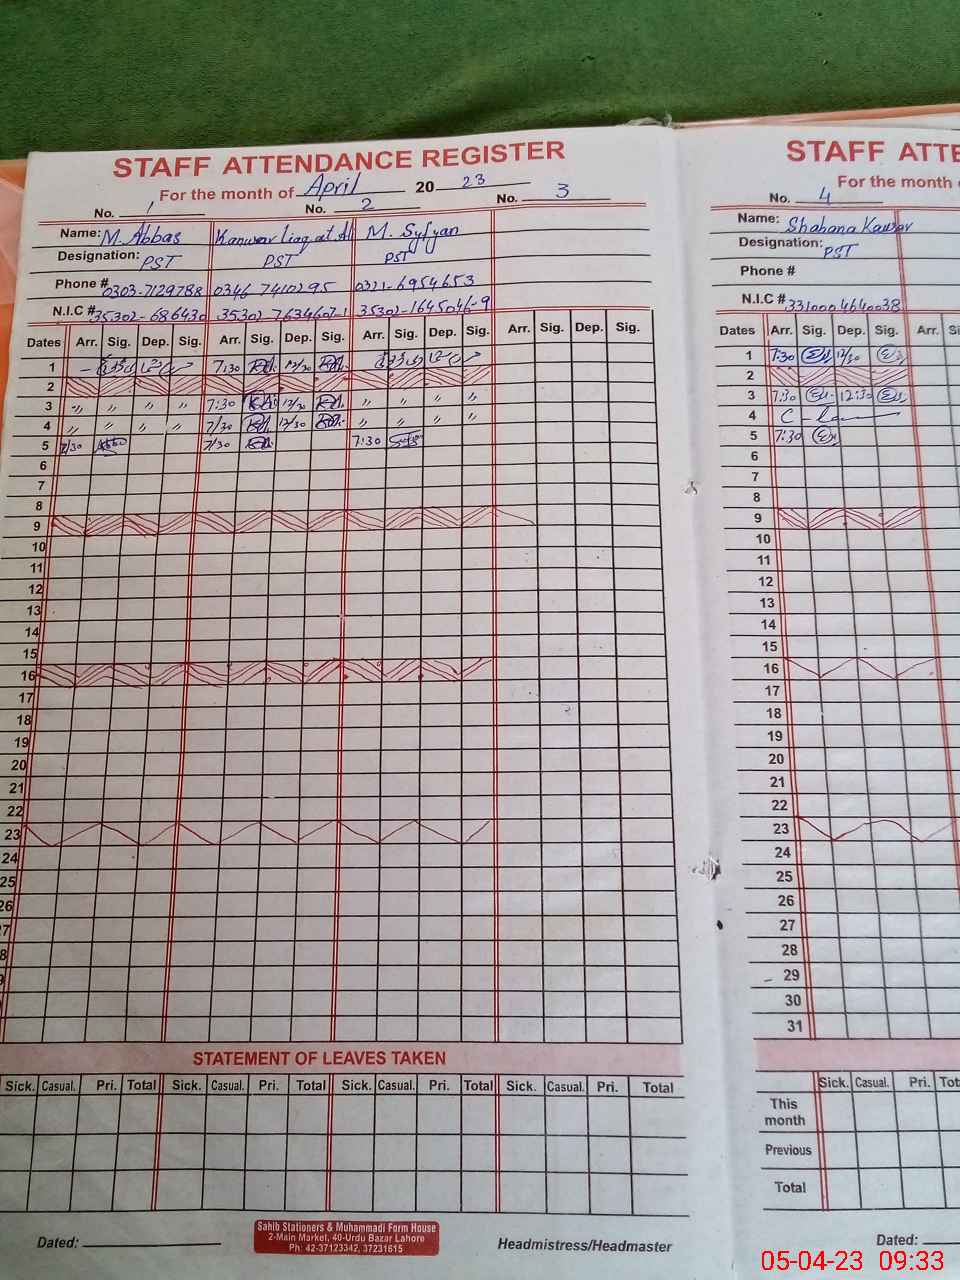 STAFF ATTENDANCE REGISTER
For the month of April 2023
No. 1 No. 2 No. 3
Name: M. Abbas Kanwar Liaqat Al M. Syfyan
Designation: PST PST PST
Phone # 0303-7129788 0346 7410295 0321-6954653
N.I.C # 35302-686430 35302-7634607-1 35302-1645046-9
Dates Arr. Sig. Dep. Sig. Arr. Sig. Dep. Sig. Arr. Sig. Dep. Sig. Arr. Sig. Dep. Sig.
1 7:30 12/30
2
3 〃 〃 〃 〃 7:30 12/30 〃 〃 〃 〃
4 〃 〃 〃 〃 7/30 12/30 〃 〃 〃 〃
5 7/30 7/30 7:30
6
7
8
9
10
11
12
13
14
15
16
17
18
19
20
21
22
23
24
25
26
7
8
9
STATEMENT OF LEAVES TAKEN
Sick. Casual. Pri. Total Sick. Casual. Pri. Total Sick. Casual. Pri. Total Sick. Casual. Pri. Total
Dated:
Sahib Stationers & Muhammadi Form House
2-Main Market, 40-Urdu Bazar Lahore
Ph: 42-37123342, 37231615
Headmistress/Headmaster
STAFF ATTE
For the month
No. 4
Name: Shahana Kausar
Designation: PST
Phone #
N.I.C # 3310004640038
Dates Arr. Sig. Dep. Sig. Arr. S
1 7:30 12/30
2
3 7:30 12:30
4
5 7:30
6
7
8
9
10
11
12
13
14
15
16
17
18
19
20
21
22
23
24
25
26
27
28
29
30
31
Sick. Casual. Pri. Tot
This
month
Previous
Total
Dated:
05-04-23 09:33